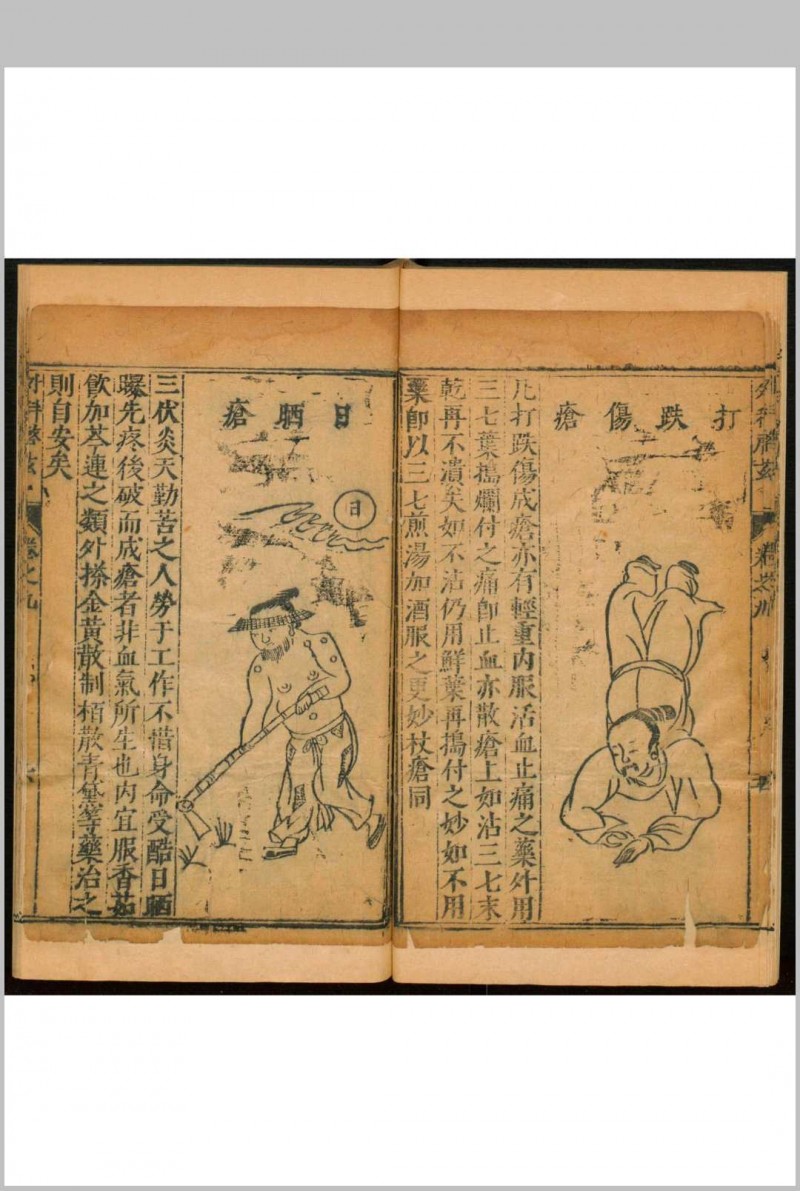 打跌傷瘡
凡打跌傷成瘡亦有輕重内服活血止痛之藥外用
三七葉搗爛付之痛卽止血亦散瘡上如沾三七末
乾再不潰矣如不沾仍用鮮葉再搗付之妙如不用
葉卽以三七煎湯加酒服之更妙杖瘡同
日晒瘡
日
三伏炎天勤苦之人勞于工作不惜身命受酷日晒
曝先疼後破而成瘡者非血氣所生也内宜服香茹
飲加芩連之類外搽金黃散制栢散青黛等藥治之
則自安矣
卷之九